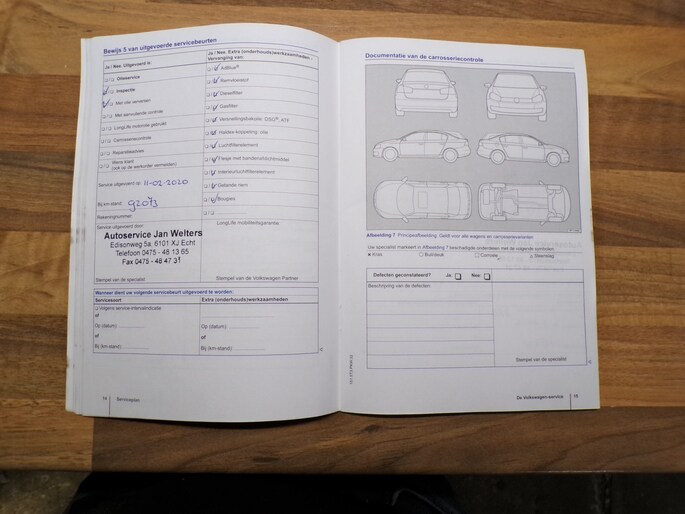 Bewijs 5 van uitgevoerde servicebeurten
Ja / Nee. Uitgevoerd is:
Olieservice
Inspectie
Met olie verversen
Met aanvullende controle
LongLife motorolie gebruikt
Carrosseriecontrole
Reparatieadvies
Wens klant
(ook op de werkorder vermelden)
Service uitgevoerd op: 11-02-2020
Bij km-stand: 92073
Rekeningnummer:
Service uitgevoerd door:
Autoservice Jan Welters
Edisonweg 5a, 6101 XJ Echt
Telefoon 0475 - 48 13 65
Fax 0475 - 48 47 31
Stempel van de specialist
Ja / Nee. Extra (onderhouds)werkzaamheden
Vervanging van:
AdBlue®
Remvloeistof
Dieselfilter
Gasfilter
Versnellingsbakolie: DSG®, ATF
Haldex koppeling: olie
Luchtfilterelement
Flesje met bandenafdichtmiddel
Interieurluchtfilterelement
Getande riem
Bougies
LongLife mobiliteitsgarantie:
Stempel van de Volkswagen Partner
Wanneer dient uw volgende servicebeurt uitgevoerd te worden:
Servicesoort
Extra (onderhouds)werkzaamheden
Volgens service-intervalindicatie
of
Op (datum):
of
Bij (km-stand):
Op (datum):
of
Bij (km-stand):
14
Serviceplan
Documentatie van de carrosseriecontrole
Afbeelding 7 Principeafbeelding. Geldt voor alle wagens en carrosserievarianten.
Uw specialist markeert in Afbeelding 7 beschadigde onderdelen met de volgende symbolen:
Kras
Buil/deuk
Corrosie
Steenslag
Defecten geconstateerd?
Ja:
Nee:
Beschrijving van de defecten:
Stempel van de specialist
De Volkswagen-service
15